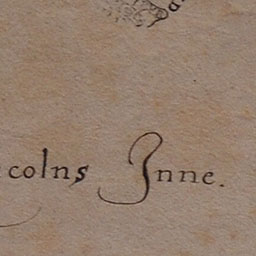 colns Inne.